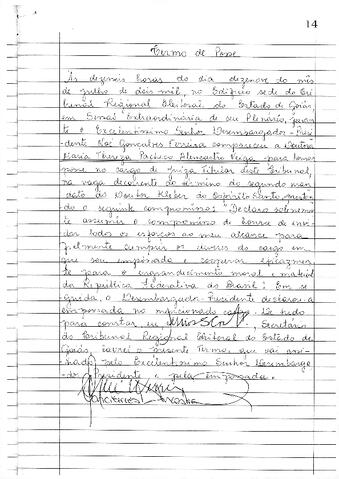 14
Termo de Posse
Às dezesseis horas do dia dezenove do mês
de julho de dois mil, no Edifício sede do Tri-
bunal Regional Eleitoral do Estado de Goiás,
em Sessão Extraordinária de seu Plenário, peran-
te o Excelentíssimo Senhor Desembargador-Presi-
dente Noé Gonçalves Ferreira compareceu a Doutora
Maria Thereza Pacheco Alencastro Veiga para tomar
posse no cargo de Juíza Titular deste Tribunal,
na vaga decorrente do término do segundo man-
dato do Doutor Kleber do Espírito Santo, prestan-
do o seguinte compromisso: "Declaro solenemen-
te assumir o compromisso de honra de envi-
dar todos os esforços ao meu alcance para
fielmente cumprir os deveres do cargo em
que sou empossada e cooperar eficazmen-
te para o engrandecimento moral e material
da República Federativa do Brasil". Em se-
guida, o Desembargador-Presidente declarou a
empossada no mencionado cargo. De tudo
para constar, eu Secretária
do Tribunal Regional Eleitoral do Estado de
Goiás lavrei o presente Termo, que vai assi-
nado pelo Excelentíssimo Senhor Desembarga-
dor Presidente e pela empossada.